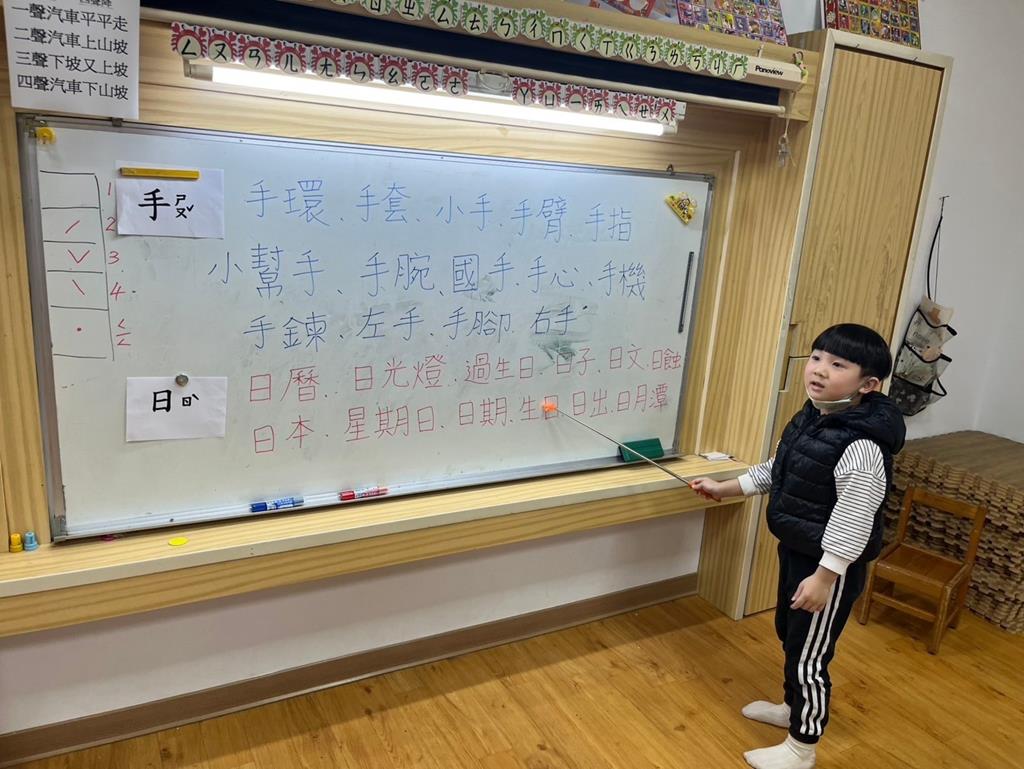 一聲汽車平平走
二聲汽車上山坡
三聲下坡又上坡
四聲汽車下山坡
ㄙㄊㄋㄧㄇㄒㄍㄋㄌㄢㄐㄏ
Panoview
ㄥㄡㄢㄦㄤㄞㄠㄜㄝ
ㄚㄩㄧㄞㄟㄝㄡ
手ㄕㄡˇ
手環、手套、小手、手臂、手指
小幫手、手腕、國手、手心、手機
手鍊、左手、手腳、右手
日ㄖˋ
日曆、日光燈、過生日、日子、日文、日蝕
日本、星期日、日期、生日、日出、日月潭
1
2
3.
4.